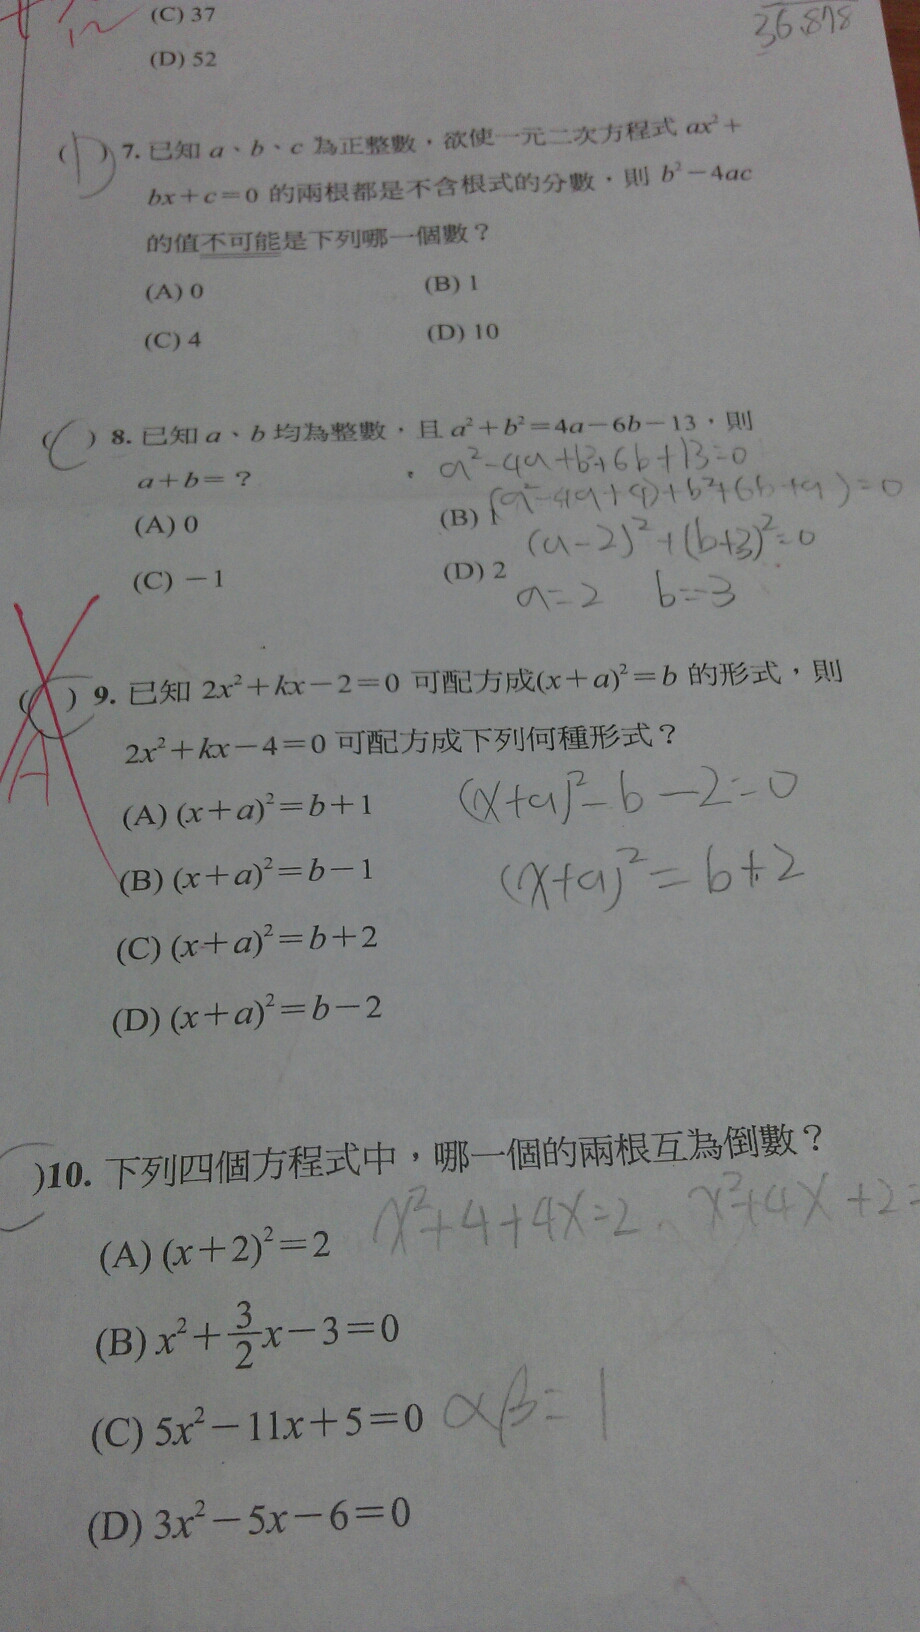 (C) 37
36.878
12
(D) 52
(D) 7. 已知 a、b、c 為正整數，欲使一元二次方程式 ax²+
bx+c=0 的兩根都是不含根式的分數，則 b²-4ac
的值不可能是下列哪一個數？
(A) 0 (B) 1
(C) 4 (D) 10
(C) 8. 已知 a、b 均為整數，且 a²+b²=4a-6b-13，則
a+b=？
a²-4a+b²+6b+13=0
(A) 0 (B) 1
(a²-4a+4)+b²+6b+9)=0
(a-2)²+(b+3)²=0
(C) -1 (D) 2
a=2 b=-3
(C) 9. 已知 2x²+kx-2=0 可配方成(x+a)²=b 的形式，則
A
2x²+kx-4=0 可配方成下列何種形式？
(A) (x+a)²=b+1
(x+a)²-b-2=0
(B) (x+a)²=b-1
(x+a)²=b+2
(C) (x+a)²=b+2
(D) (x+a)²=b-2
)10. 下列四個方程式中，哪一個的兩根互為倒數？
(A) (x+2)²=2
x²+4+4x=2、x²+4x+2=
(B) x²+3/2x-3=0
(C) 5x²-11x+5=0
αβ=1
(D) 3x²-5x-6=0